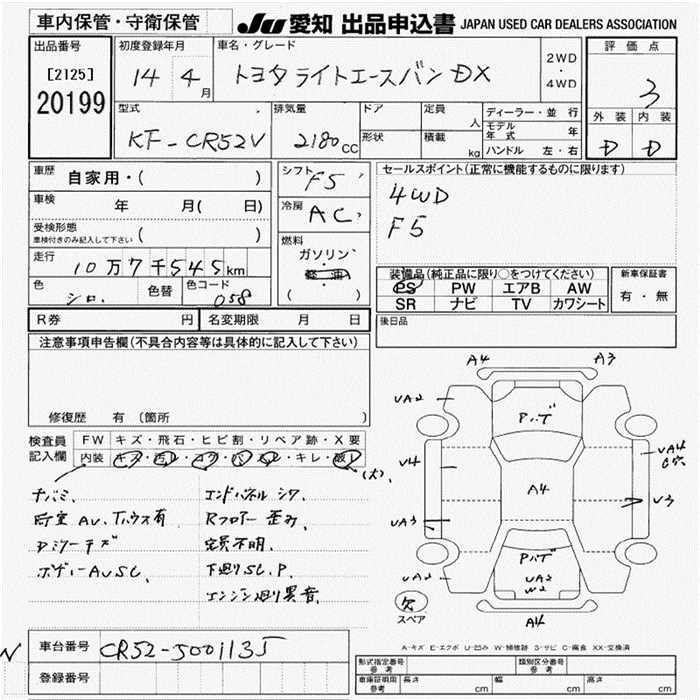 車内保管・守衛保管
JU 愛知 出品申込書 JAPAN USED CAR DEALERS ASSOCIATION
出品番号
[2125]
20199
初度登録年月
14 4月
車名・グレード
トヨタライトエースバン DX
2WD
・
4WD
評価点
3
外装 内装
D D
型式
KF-CR52V
排気量
2180cc
ドア
形状
定員 人
積載 kg
ディーラー・並行
モデル年式 年
ハンドル 左・右
車歴
自家用・( )
車検
年 月( 日)
受検形態
車検付きのみ記入して下さい ( )
走行
10万7千545km
色
シロ
色替
色コード
058
シフト
F5
冷房
AC
燃料
ガソリン
・
軽油
・
( )
セールスポイント(正常に機能するものに限ります)
4WD
F5
装備品(純正品に限り○をつけてください)
PS PW エアB AW
SR ナビ TV カワシート
新車保証書
有・無
後日品
R券 円
名変期限 月 日
注意事項申告欄(不具合内容等は具体的に記入して下さい)
修復歴 有(箇所 )
検査員記入欄
FW キズ・飛石・ヒビ割・リペア跡・X要
内装 キズ・汚レ・コゲ・穴・スレ・キレ・破レ
(大)
エンドパネル シワ
Rフロアー 歪み
定員不明
下廻りSC.P.
エンジン廻り異音
ボデーAVSC.
A4
A3
VA2
P.バT
VA4
C穴
V4
A4
V3
VA3
P.バT
VA2
VA2
W2
A4
欠
スペア
A-キズ E-エクボ U-凹み W-補修跡 S-サビ C-腐食 XX-交換済
車台番号
CR52-5001135
登録番号
形式指定番号
参考
類別区分番号
参考
車庫証明用
参考
長さ cm
幅 cm
高さ cm